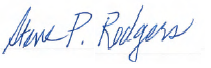 Steve P. Rodgers